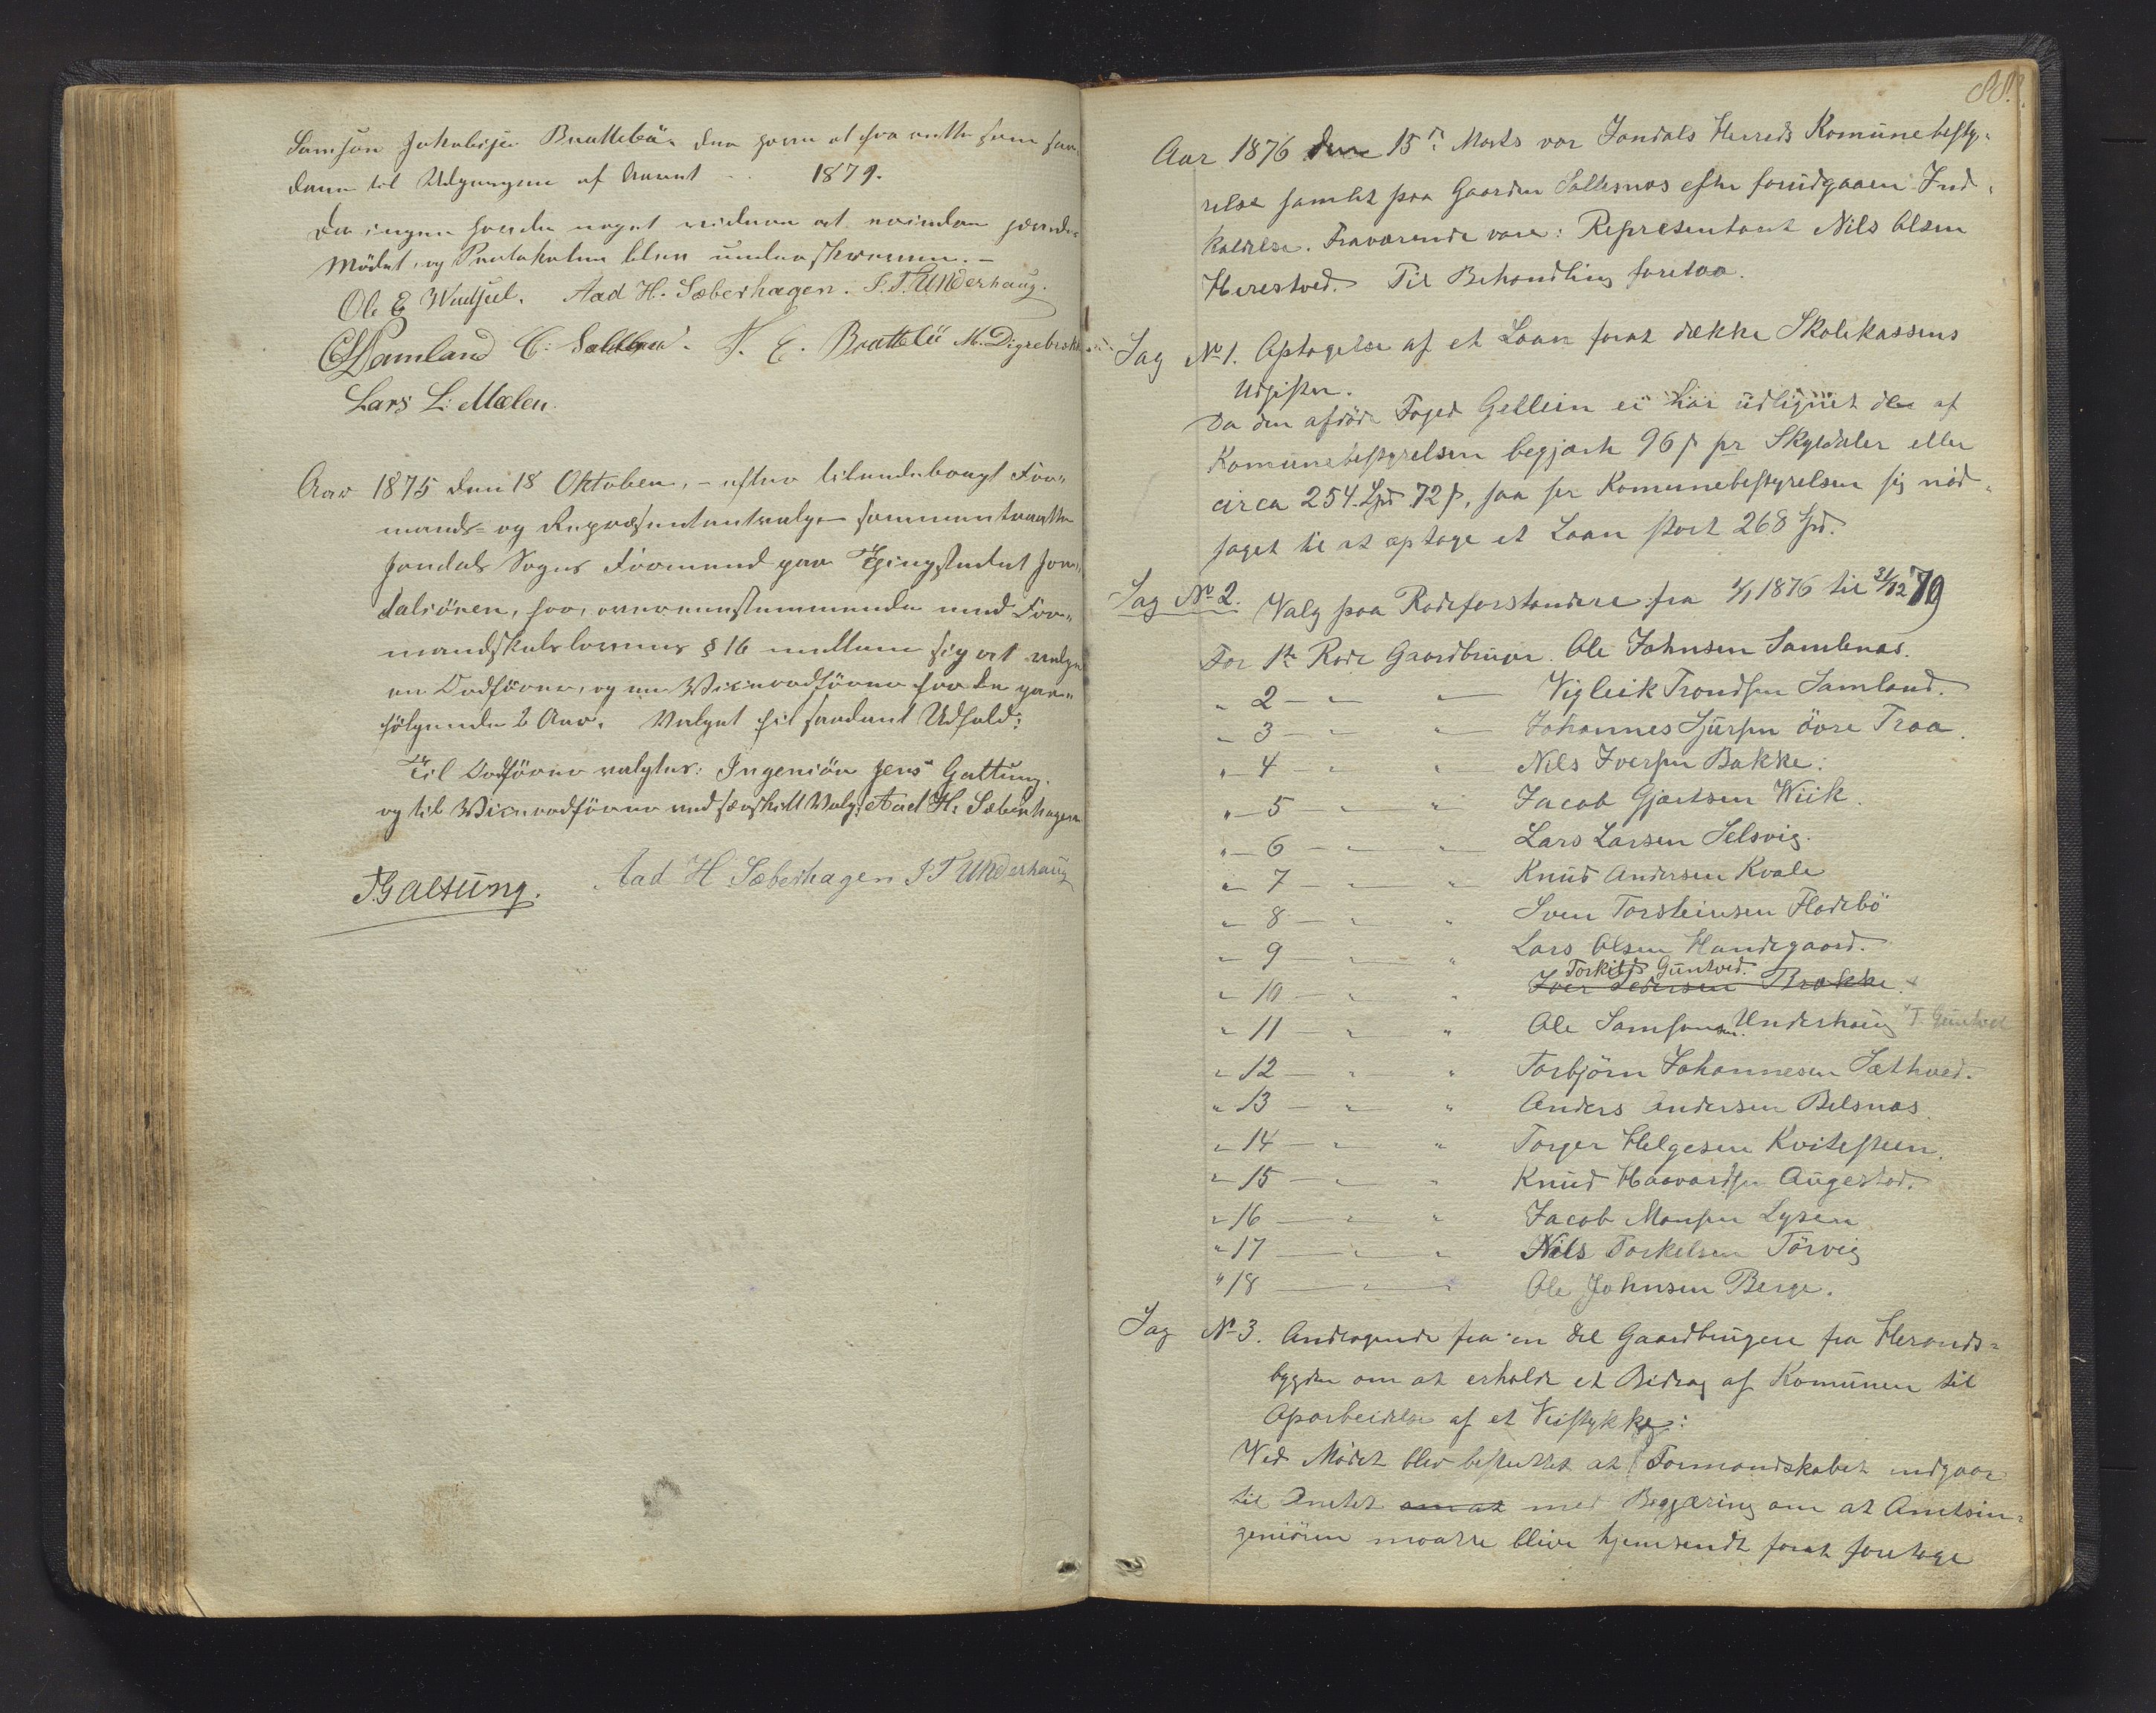 Samson Jakobsen Brattebø, den som at fra rette som saa-
dan til Udgangen af Aaret 1879.
Da ingen havde noget videre at erindre hævedes
Mødet, og Protokolen blev underskreven. –
Ole E Aad H. Sæberhagen. S. T. Underhaug.
C. J. E. Brattebö M. Digrebrekke
Lars L: Mælen
Aar 1875 den 18 Oktober, – efter tilendebragt For-
mands- og Repræsentantvalg – sammentraadte
Jondals Sogns Formænd paa Thingstedet Jon-
dalsören, for, overensstemmende med For-
mandskabslovens § 16 mellem sig at velge
en Ordförer, og en Viceordförer for de paa-
fölgende 2 Aar. Valget fik saadant Udfald:
Til Ordförer valgtes: Ingeniör Jens Galtung.
og til Viceordförer ved særskilt Valg: Aad H. Sæberhagen
J Galtung. Aad H Sæberhagen S T Underhaug
88.
Aar 1876 den 15d: Marts var Jondals Herreds Komünebesty-
relse samlet paa Gaarden Sollesnæs efter forüdgaaen Ind-
kaldelse. Fraværende vare: Representant Nils Olsen
Herestved. Til Behandling foretoa.
Sag No 1. Optagelse af et Laan forat dække Skolekassens
Udgifter.
Da den afdöde Foged Gellein ei har üdlignet de af
Komünebestyrelsen begjærte 96 ß pr Skyldaler eller
circa 254 Spd 72 ß, saa ser Komunebestyrelsen sig nöd-
saget til at optage et Laan stort 268 Spd.
Sag No 2. Valg paa Rodeforstandere fra 1/1 1876 til 31/12 79
For 1te Rode Gaardbrüger Ole Johnsen Samlenæs.
" 2 – " " – Vigleik Trondsen Samland.
" 3 – " " – Johannes Sjürsen övre Traa.
" 4 – " " – Nils Iversen Bakke:
" 5 – " " Jacob Gjertsen Wiik.
" 6 – " " – Lars Larsen Selsvig.
" 7 – " " – Knud Andersen Kvale
" 8 – " " Sven Torsteinsen Flatebö
" 9 – " " Lars Olsen Handegaard.
Torkild Güntved.
" 10 – " " Iver Pedersen Brakke. x
" 11 – " " Ole Samsonsen Underhaug x T. Güntved
" 12 – " " Torbjörn Johannesen Sæthved.
" 13 – " " Anders Andersen Belsnæs.
" 14 – " " Torger Helgesen Kvitesteen.
" 15 – " " Knud Haavardsen Augestad.
" 16 – " " Jacob Monsen Lysen
" 17 – " " Nils Torkelsen Törvig
" 18 – " " Ole Johnsen Berge.
Sag No 3. Andragende fra en Del Gaardbrügere fra Herands-
bygden om at erholde et Bidrag af Komünen til
Oparbeidelse af et Veistykke:
Ved Mödet blev besluttet at Formandskabet indgaar
til Amtet om at med Begjæring om at Amtsin-
geniören maatte blive hjemsendt forat foretage